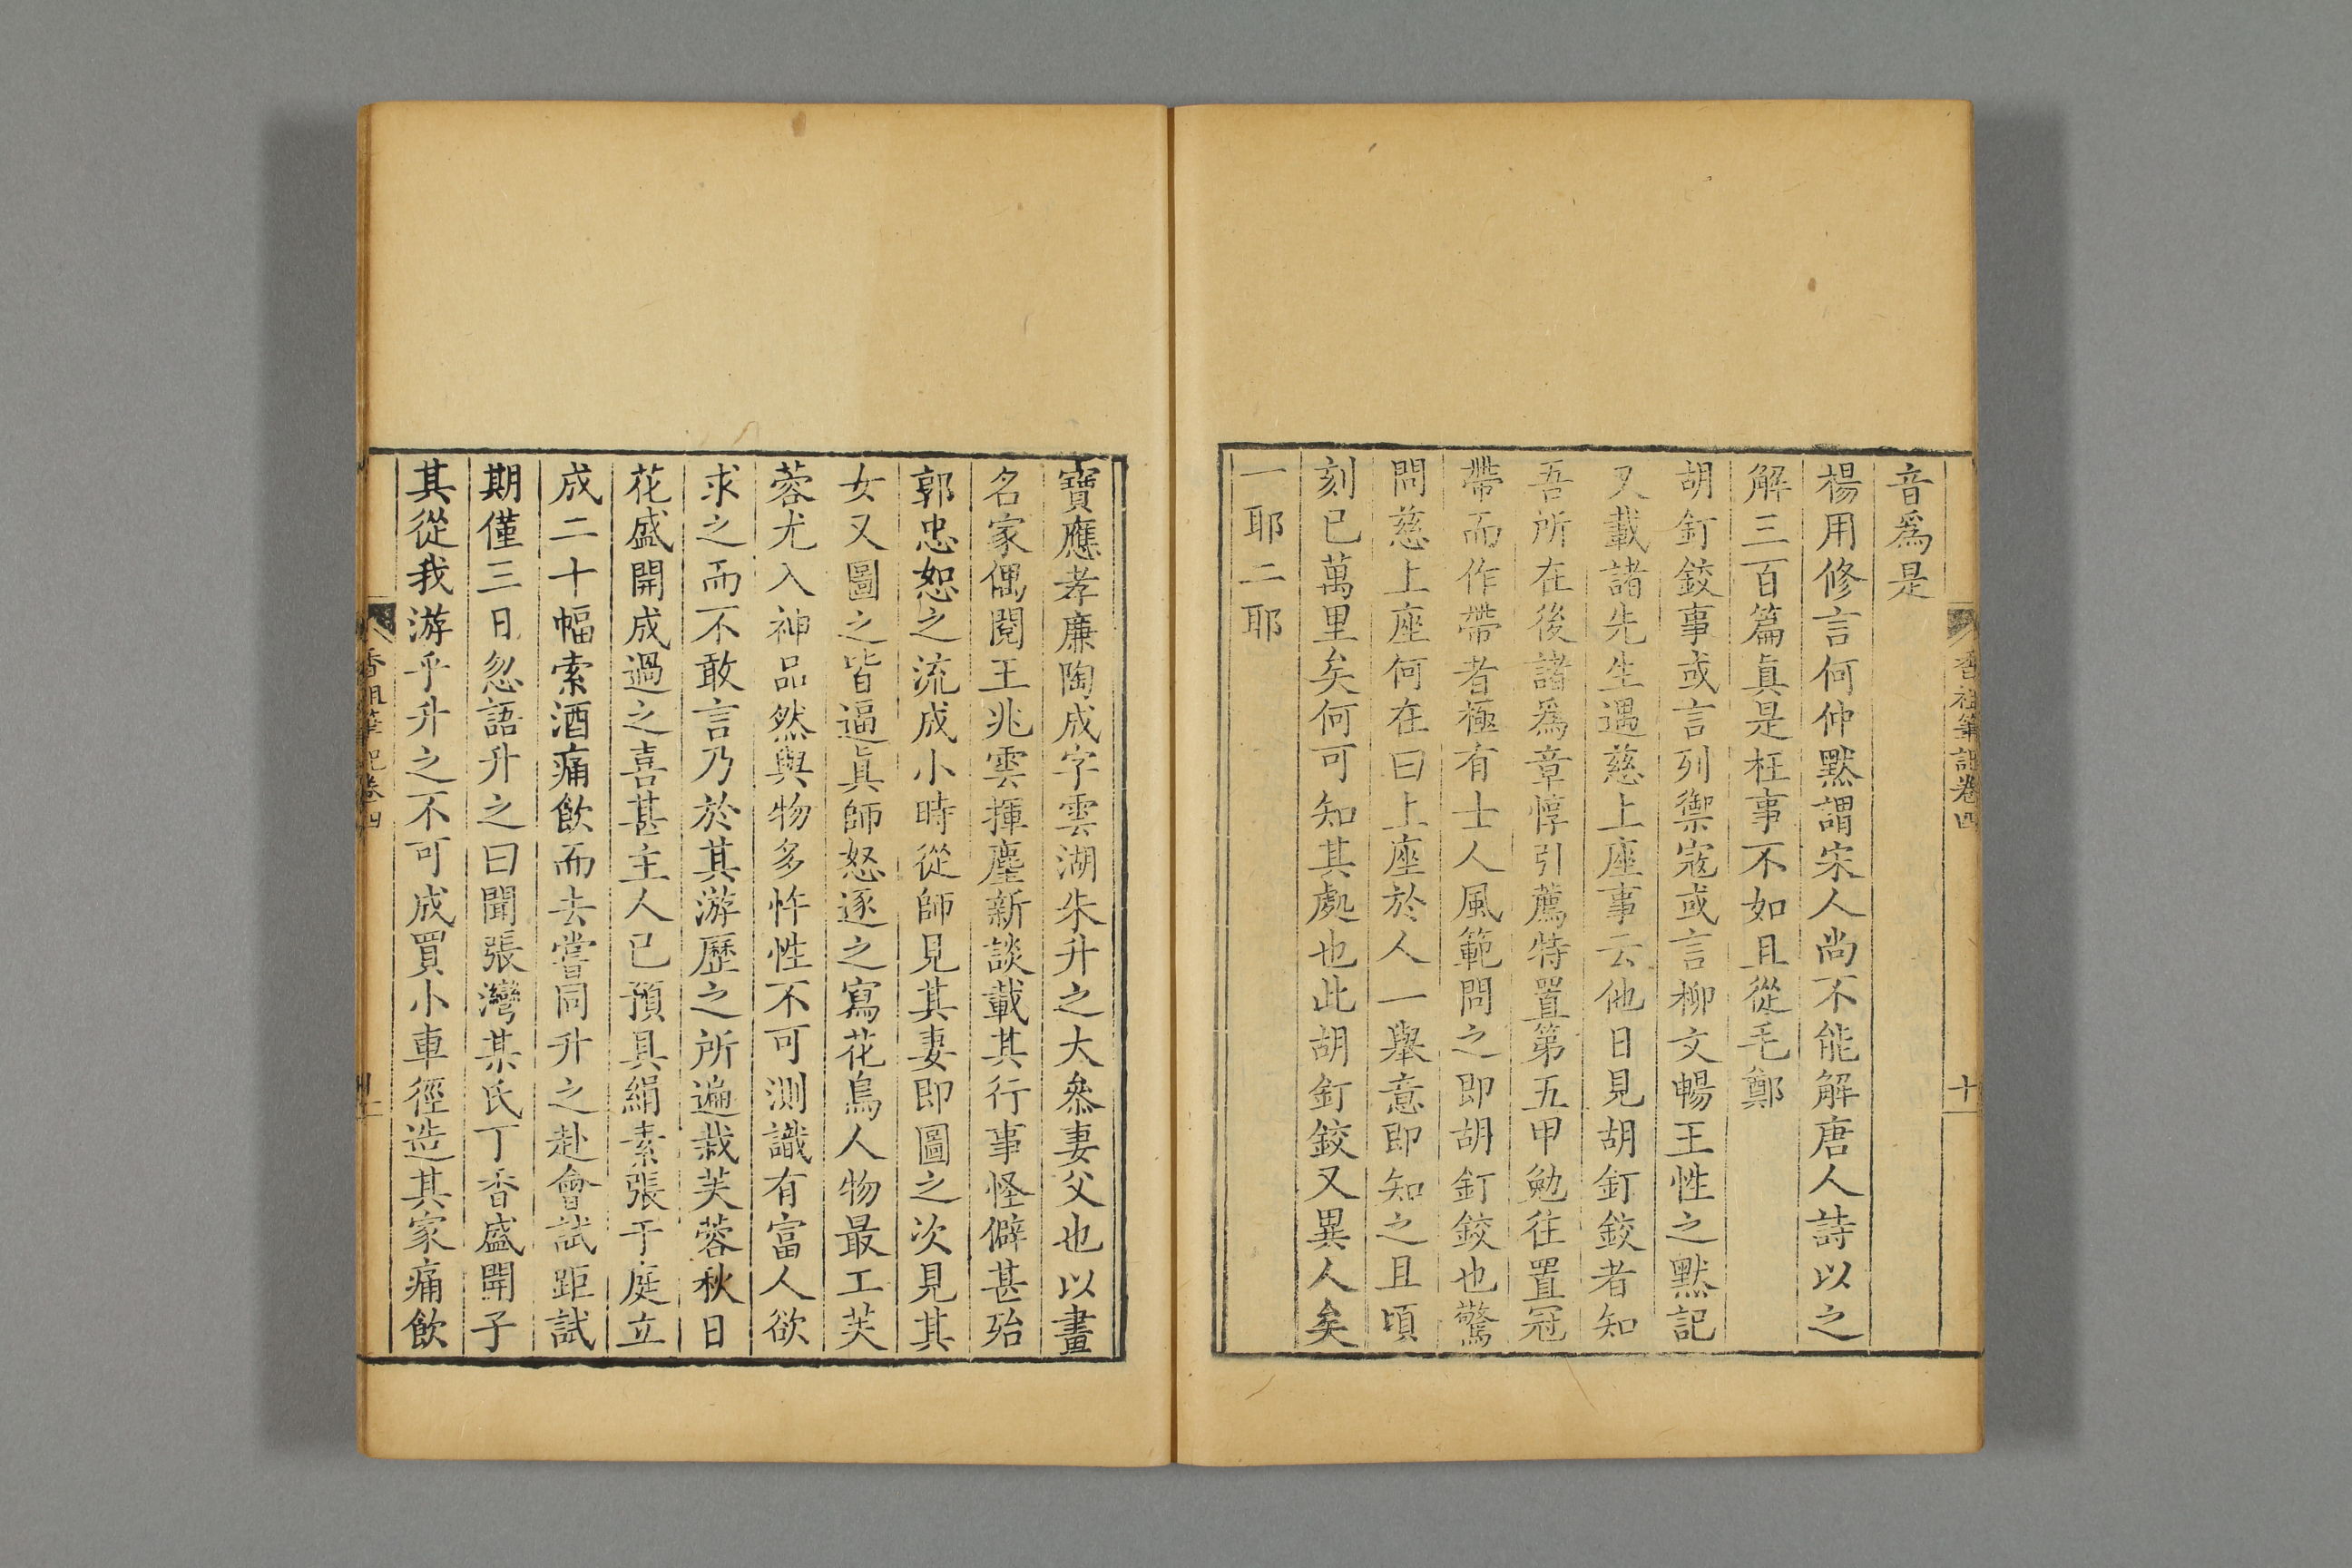 香祖筆記卷四
十
音爲是
楊用修言何仲默謂宋人尚不能解唐人詩以之
解三百篇眞是枉事不如且從毛鄭
胡釘鉸事或言列禦寇或言柳文暢王性之默記
又載諸先生遇慈上座事云他日見胡釘鉸者知
吾所在後諸爲章惇引薦特置第五甲勉往置冠
帶而作帶者極有士人風範問之即胡釘鉸也驚
問慈上座何在曰上座於人一舉意即知之且頃
刻已萬里矣何可知其處也此胡釘鉸又異人矣
一耶二耶
寶應孝廉陶成字雲湖朱升之大叅妻父也以畫
名家偶閱王兆雲揮麈新談載其行事怪僻甚殆
郭忠恕之流成小時從師見其妻即圖之次見其
女又圖之皆逼眞師怒逐之寫花鳥人物最工芙
蓉尤入神品然與物多忤性不可測識有富人欲
求之而不敢言乃於其游歷之所遍栽芙蓉秋日
花盛開成過之喜甚主人已預具絹素張于庭立
成二十幅索酒痛飲而去嘗同升之赴會試距試
期僅三日忽語升之曰聞張灣某氏丁香盛開子
其從我游乎升之不可成買小車徑造其家痛飲
香祖筆記卷四